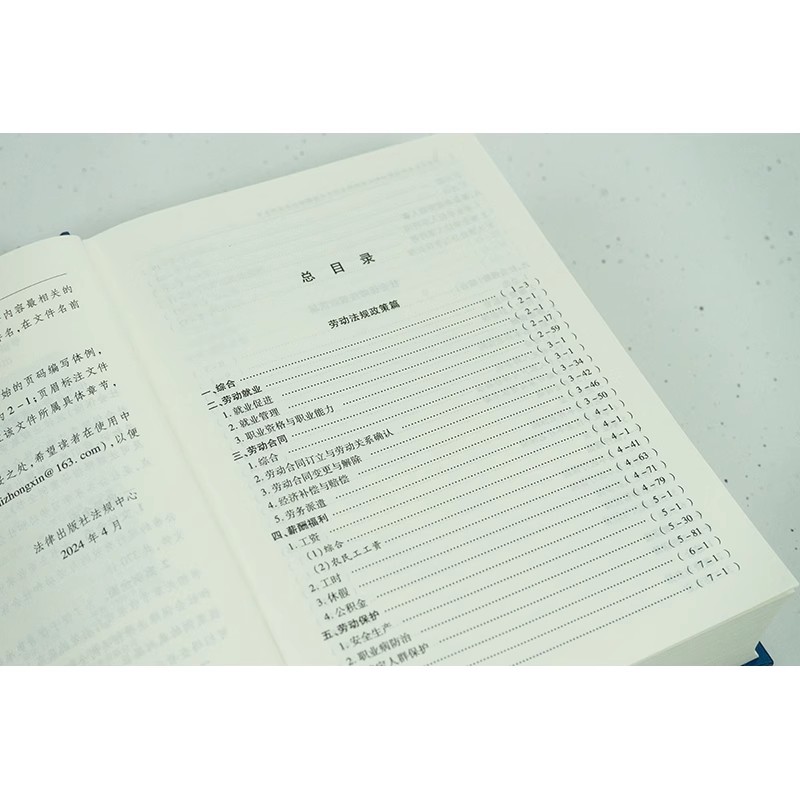 内容最相关的
名,在文件名前
始的页码编写体例,
2-1;页眉标注文件
该文件所属具体章节,
之处,希望读者在使用中
izhongxin@163.com),以便
法律出版社法规中心
2024年4月
总 目 录
劳动法规政策篇
一、综合 (1-1)
二、劳动就业 (2-1)
1. 就业促进 (2-1)
2. 就业管理 (2-17)
3. 职业资格与职业能力 (2-59)
三、劳动合同 (3-1)
1. 综合 (3-1)
2. 劳动合同订立与劳动关系确认 (3-34)
3. 劳动合同变更与解除 (3-42)
4. 经济补偿与赔偿 (3-46)
5. 劳务派遣 (3-50)
四、薪酬福利 (4-1)
1. 工资 (4-1)
(1)综合 (4-1)
(2)农民工工资 (4-41)
2. 工时 (4-63)
3. 休假 (4-71)
4. 公积金 (4-79)
五、劳动保护 (5-1)
1. 安全生产 (5-1)
2. 职业病防治 (5-30)
定人群保护 (5-81)
(6-1)
(7-1)
(7-1)